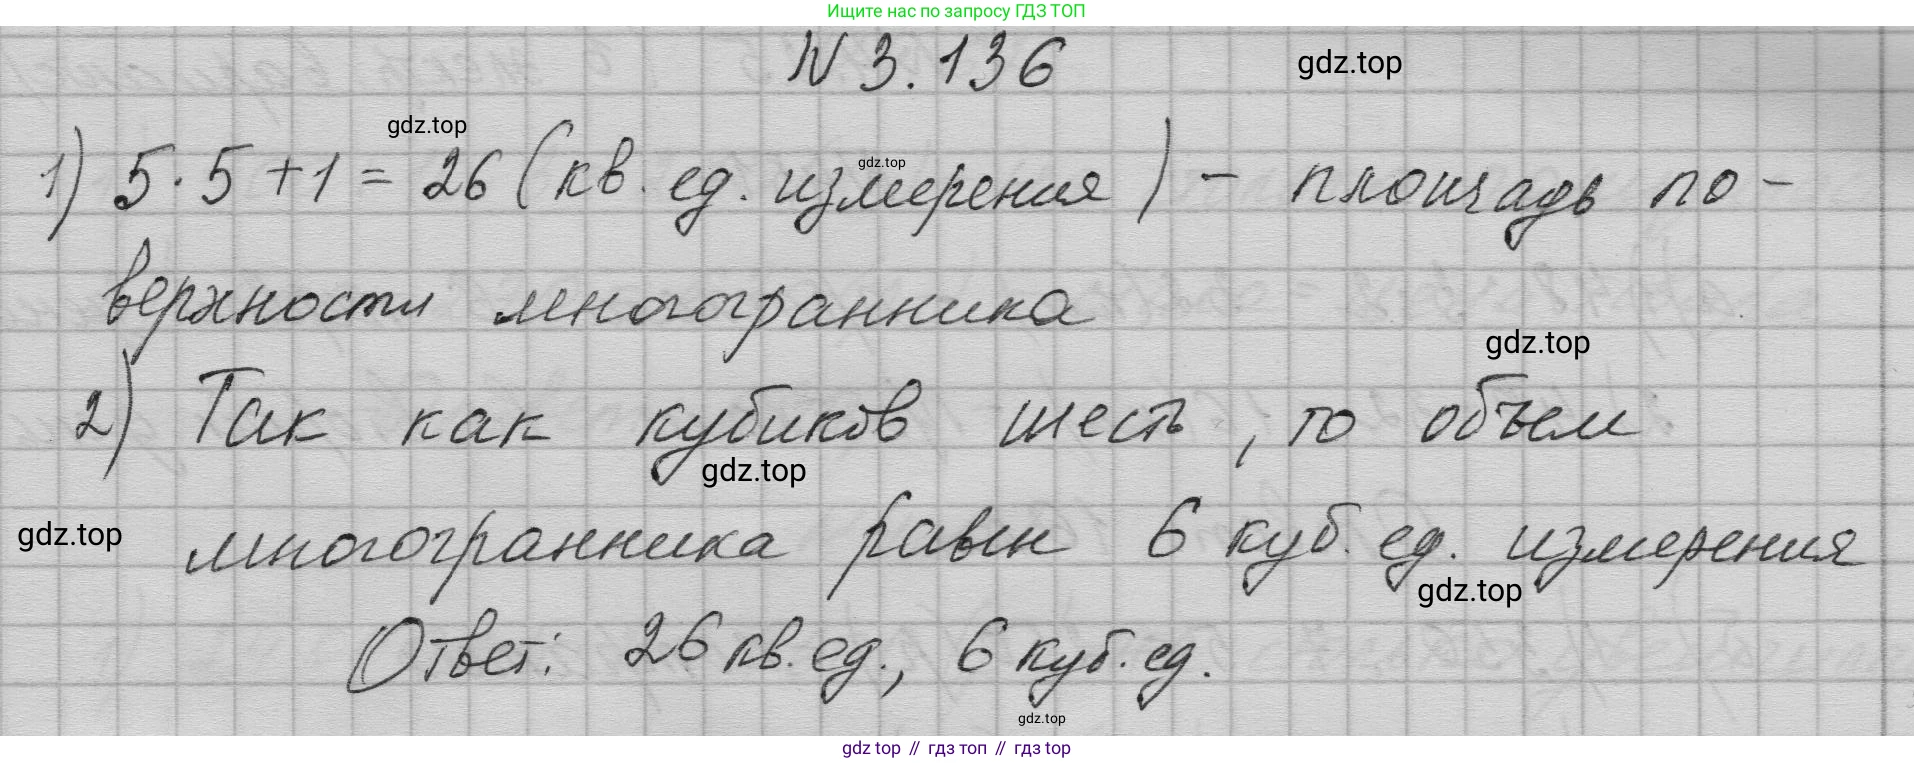 Ищите нас по запросу ГДЗ ТОП
N 3.136
gdz.top
gdz.top
gdz.top
1) 5·5+1=26 (кв. ед. измерения) – площадь по-
верхности многогранника
gdz.top
2) Так как кубиков шесть, то объем
gdz.top
gdz.top
многогранника равен 6 куб. ед. измерения
gdz.top
Ответ: 26 кв. ед., 6 куб. ед.
gdz.top
gdz top // гдз топ // гдз top